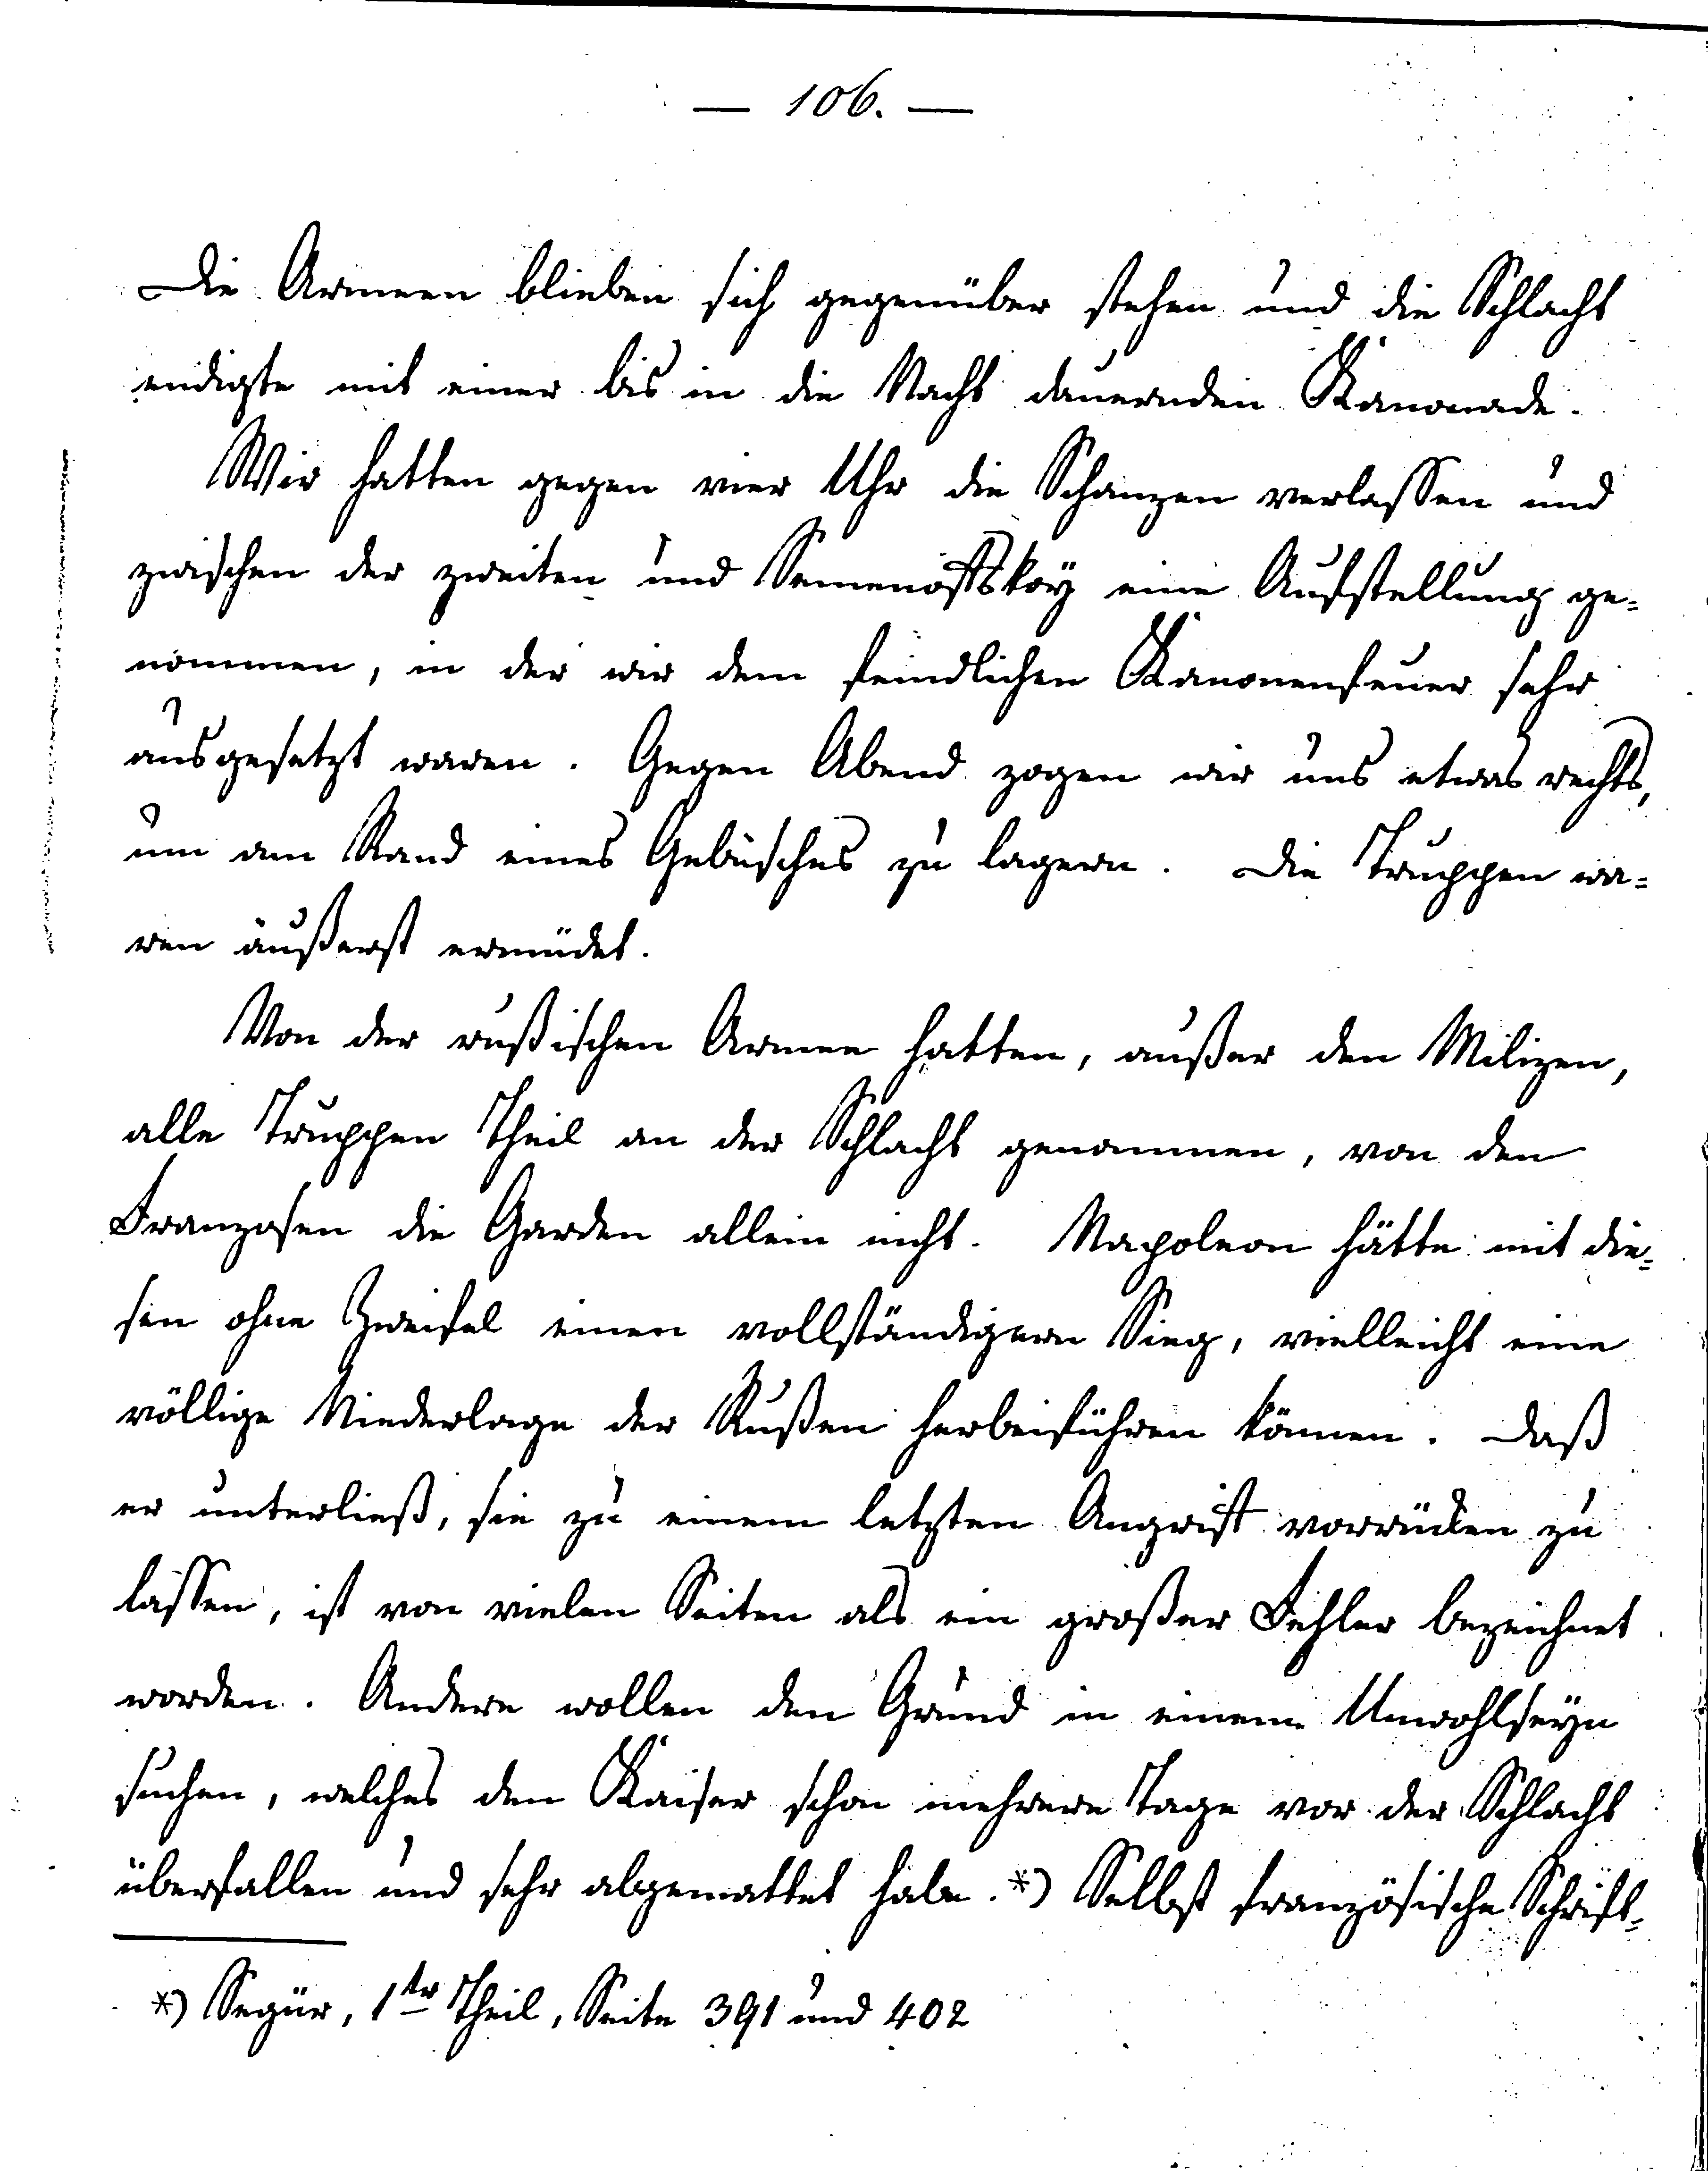 — 106. —
Die Armeen blieben sich gegenüber stehen und die Schlacht
endigte mit einer bis in die Nacht dauernden Kanonade.
Wir hatten gegen vier Uhr die Schanzen verlassen und
zwischen der zweiten und Semenoffskoy eine Aufstellung ge=
nommen, in der wir dem feindlichen Kanonenfeuer sehr
ausgesetzt waren. Gegen Abend zogen wir uns etwas rechts,
um am Rand eines Gebüsches zu lagern. Die Truppen wa=
ren äußerst ermüdet.
Von der rußischen Armee hatten, außer den Milizen,
alle Truppen Theil an der Schlacht genommen, von den
Franzosen die Garden allein nicht. Napoleon hätte mit die=
sen ohne Zweifel einen vollständigern Sieg, vielleicht eine
völlige Niederlage der Rußen herbeiführen können. Daß
er unterließ, sie zu einem letzten Angriff vorrücken zu
lassen, ist von vielen Seiten als ein großer Fehler bezeichnet
worden. Andere wollen den Grund in einem Unwohlseyn
suchen, welches den Kaiser schon mehrere Tage vor der Schlacht
überfallen und sehr abgemattet habe. *) Selbst französische Schrift=
*) Segür, 1ter Theil, Seite 391 und 402